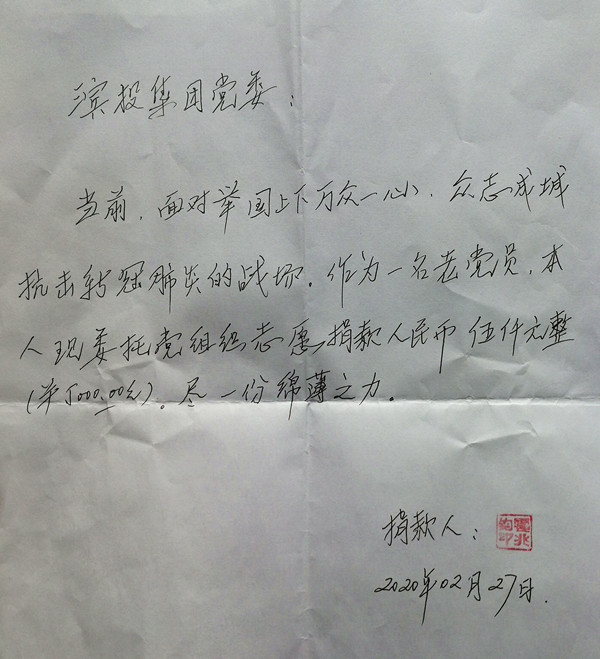 滨投集团党委：
当前，面对举国上下万众一心、众志成城
抗击新冠肺炎的战场。作为一名老党员，本
人现委托党组织志愿捐款人民币 伍仟元整
(￥5000.00元)。尽一份绵薄之力。
捐款人：
2020年02月27日.